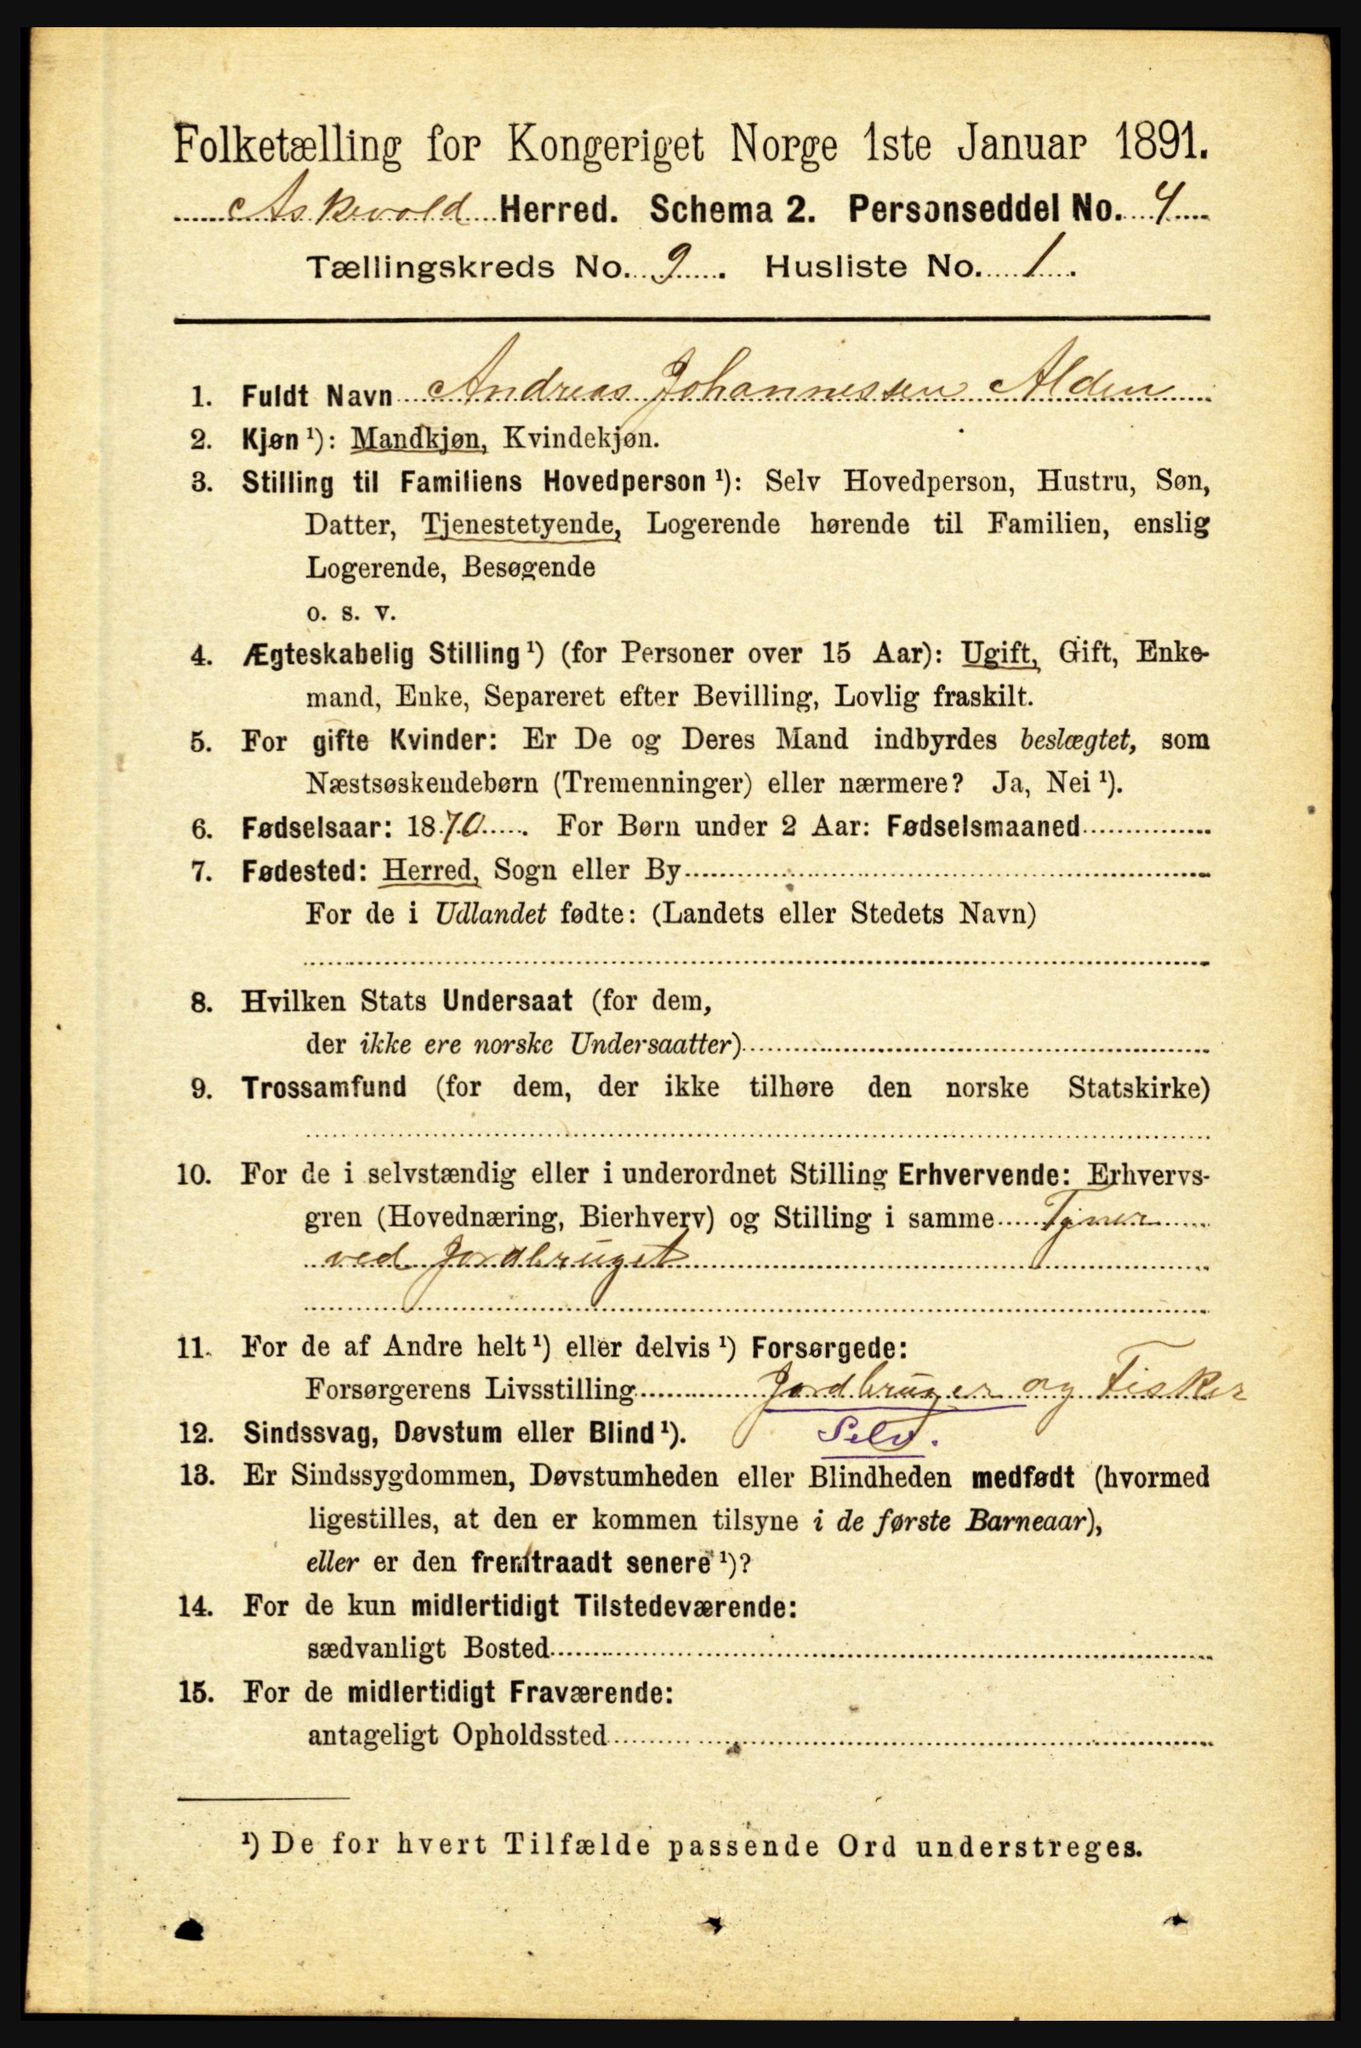 Folketælling for Kongeriget Norge 1ste Januar 1891.
Askevold Herred. Schema 2. Personseddel No. 4
Tællingskreds No. 9. Husliste No. 1.
1. Fuldt Navn Andreas Johannessen Alden
2. Kjøn ¹): Mandkjøn, Kvindekjøn.
3. Stilling til Familiens Hovedperson ¹): Selv Hovedperson, Hustru, Søn,
Datter, Tjenestetyende, Logerende hørende til Familien, enslig
Logerende, Besøgende
o. s. v.
4. Ægteskabelig Stilling ¹) (for Personer over 15 Aar): Ugift, Gift, Enke-
mand, Enke, Separeret efter Bevilling, Lovlig fraskilt.
5. For gifte Kvinder: Er De og Deres Mand indbyrdes beslægtet, som
Næstsøskendebørn (Tremenninger) eller nærmere? Ja, Nei ¹).
6. Fødselsaar: 1870. For Børn under 2 Aar: Fødselsmaaned
7. Fødested: Herred, Sogn eller By
For de i Udlandet fødte: (Landets eller Stedets Navn)
8. Hvilken Stats Undersaat (for dem,
der ikke ere norske Undersaatter)
9. Trossamfund (for dem, der ikke tilhøre den norske Statskirke)
10. For de i selvstændig eller i underordnet Stilling Erhvervende: Erhvervs-
gren (Hovednæring, Bierhverv) og Stilling i samme Tjener
ved Jordbruget
11. For de af Andre helt ¹) eller delvis ¹) Forsørgede:
Forsørgerens Livsstilling Jordbruger og Fisker
12. Sindssvag, Døvstum eller Blind ¹). Selv.
13. Er Sindssygdommen, Døvstumheden eller Blindheden medfødt (hvormed
ligestilles, at den er kommen tilsyne i de første Barneaar),
eller er den fremtraadt senere ¹)?
14. For de kun midlertidigt Tilstedeværende:
sædvanligt Bosted
15. For de midlertidigt Fraværende:
antageligt Opholdssted
¹) De for hvert Tilfælde passende Ord understreges.